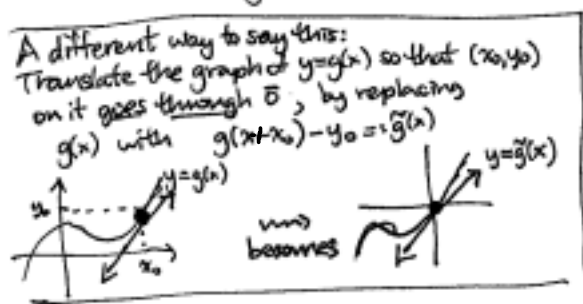 A different way to say this:
Translate the graph of y=g(x) so that (x₀,y₀)
on it goes through 0̄, by replacing
g(x) with g(x+x₀)-y₀ =: g̃(x)
y=g(x)
y=g̃(x)
y₀
⇝
becomes
x₀